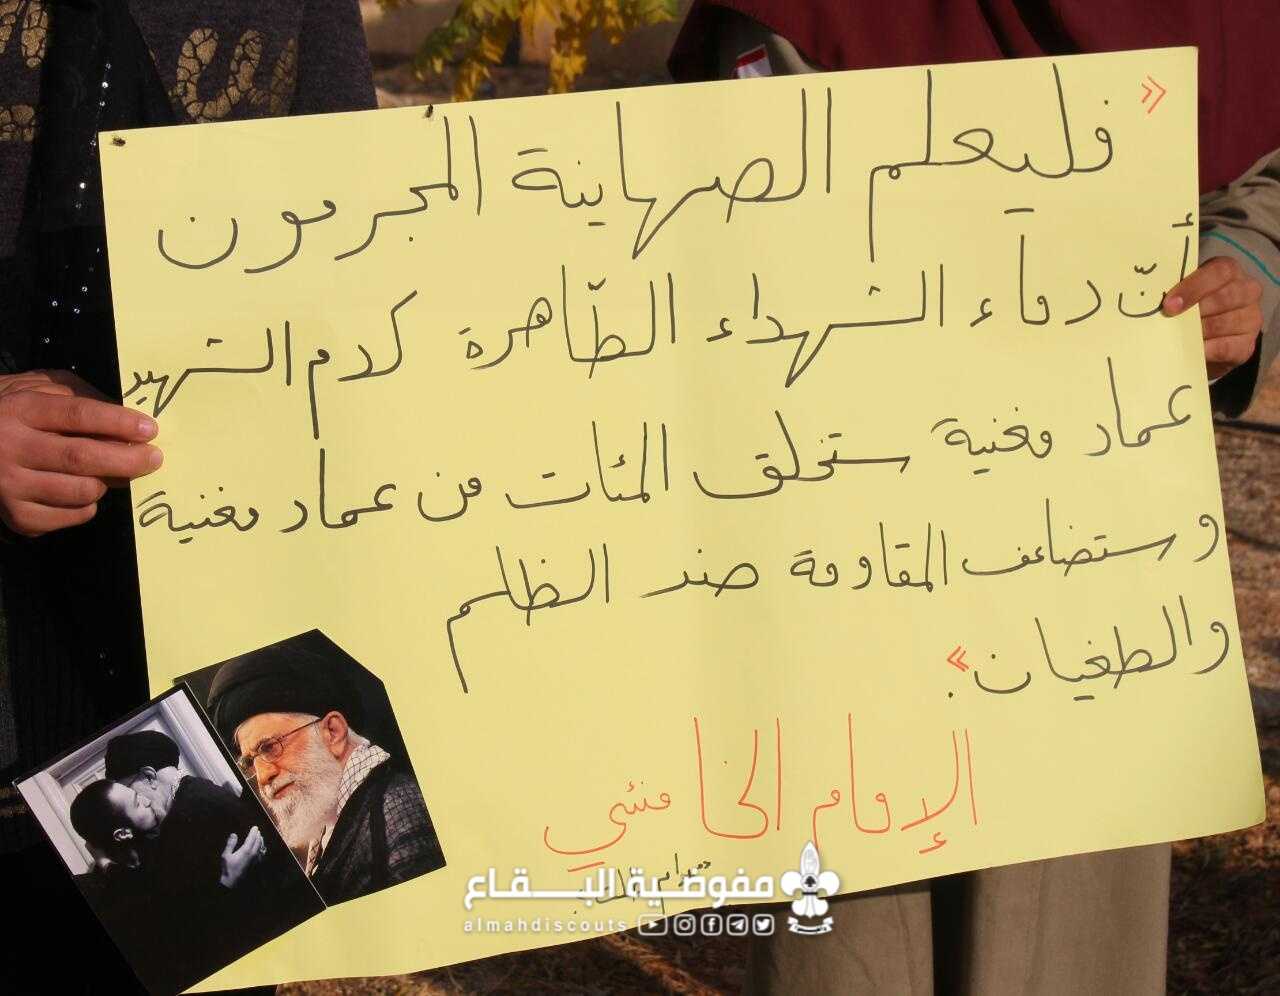 « فليعلم الصهاينة المجرمون
أنّ دماء الشهداء الطّاهرة كدم الشهيد
عماد مغنية ستخلق المئات من عماد مغنية
وستضاعف المقاومة ضد الظلم
والطغيان».
الإمام الخامنئي
مفوضية البقاع
almahdiscouts